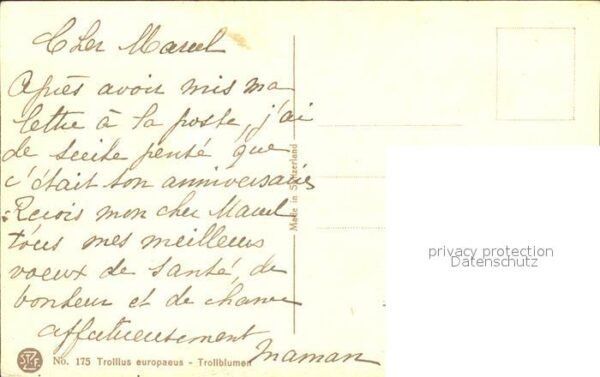 Cher Marcel
Après avoir mis ma
lettre à la poste, j'ai
de suite pensé que
c'était ton anniversaire
Reçois mon cher Marcel
tous mes meilleurs
voeux de santé, de
bonheur et de chance
affectueusement
Maman
Made in Switzerland
No. 175 Trollius europaeus - Trollblumen
privacy protection
Datenschutz